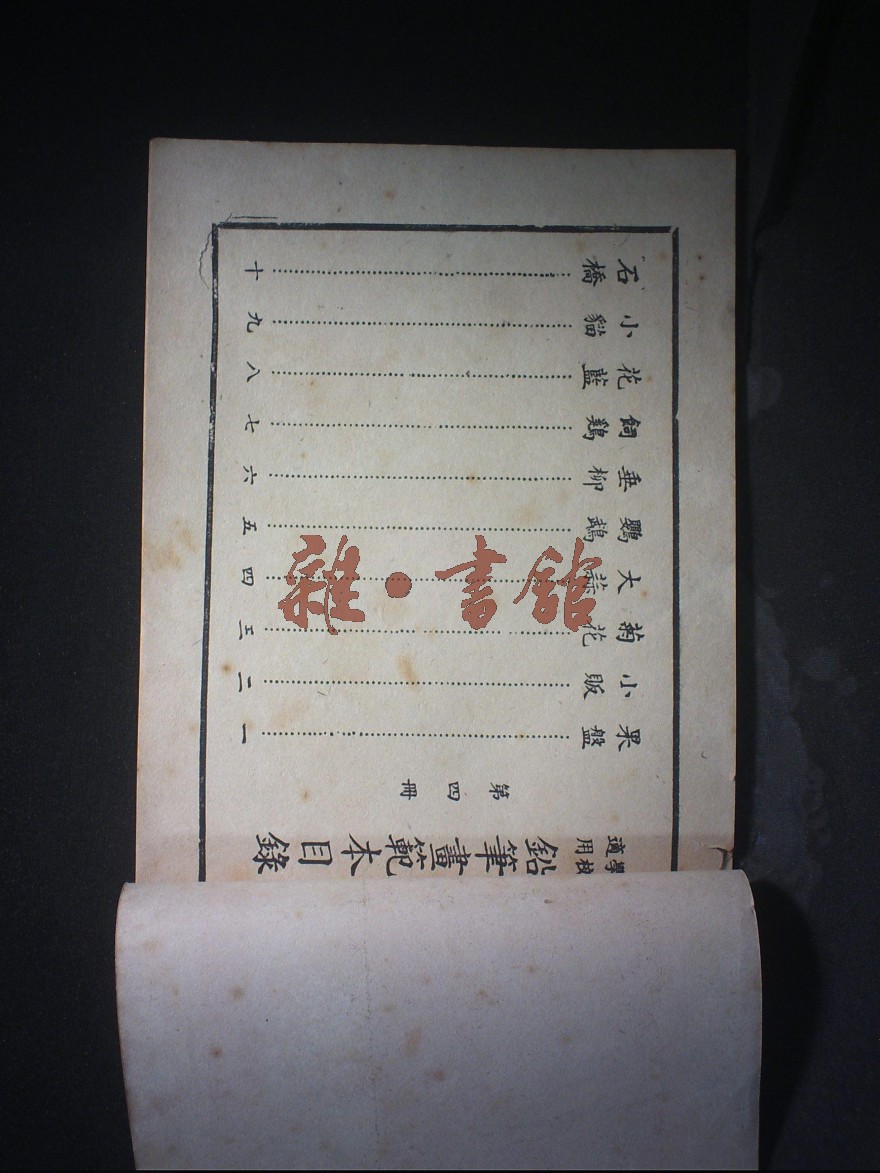 學校
適用
鉛筆畫範本目錄
第四冊
果盤……一
小販……二
菊花……三
大蒜……四
鸚鵡……五
垂柳……六
飼鷄……七
花藍……八
小貓……九
石橋……十
雜·書館